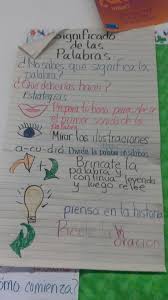 Significado
de las
Palabras
¿No sabes que significa la
palabra?
¿Que deberias hacer?
Estrategias
Prepara tu boca para decir
el primer sonido de la
palabra
Mirar las ilustraciones
a-cu-dió Divide la palabra en silabas
Brincate la
palabra y
continua leyendo
y luego relee
piensa en la historia
Relee la
oracion
Cómo comienza?